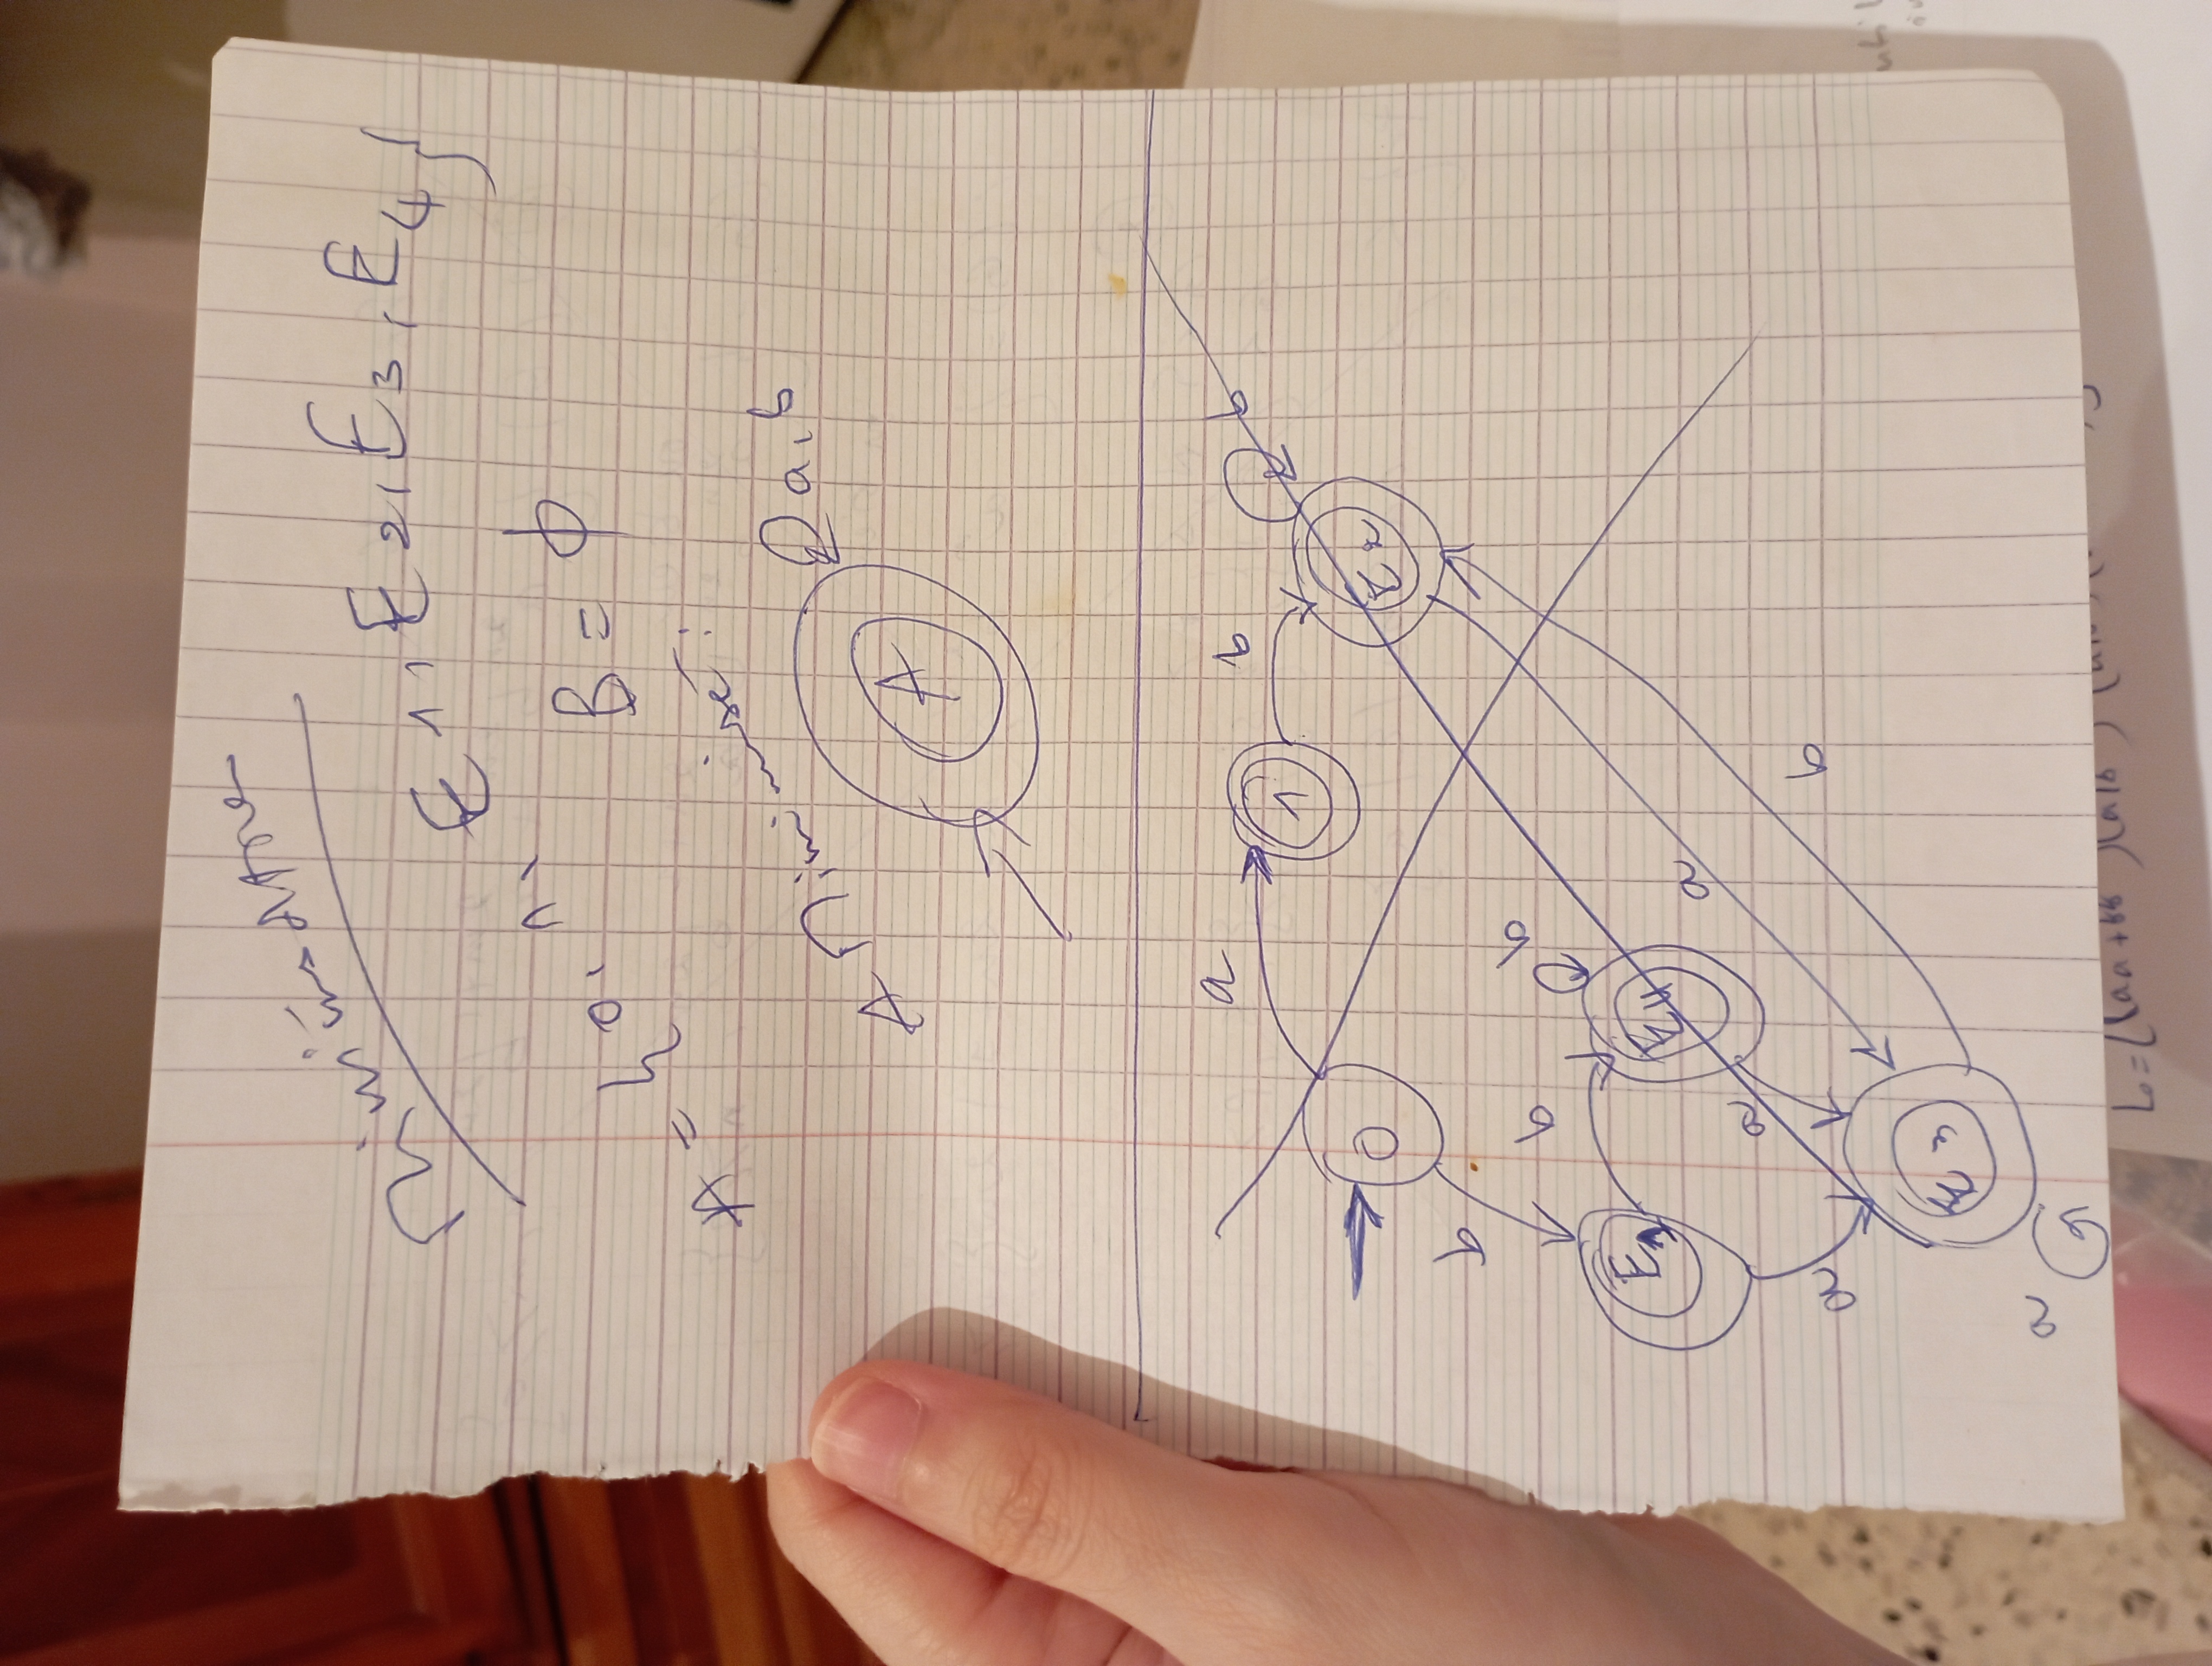 Minimisation
A = {0, 1, E1, E2, E3, E4}
B = ϕ
A Minimisé :
A
a, b
a
b
b
0
1
E2
b
b
b
E1
E4
a
a
a
b
E3
a